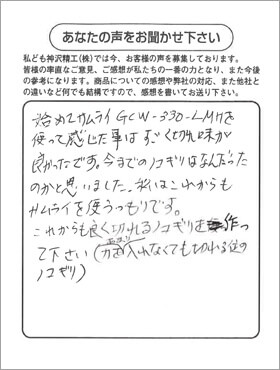 あなたの声をお聞かせ下さい
私ども神沢精工(株)では今、お客様の声を募集しております。
皆様の率直なご意見、ご感想が私たちの一番の力となり、また今後
の参考になります。商品についての感想や弊社の対応、また他社と
の違いなど何でも結構ですので、感想を書いてお送り下さい。
始めてサムライGCW-330-LMHを
使って感じた事はすごく切れ味が
良かったです。今までのノコギリはなんだった
のかと思いました。私はこれからも
サムライを使うつもりです。
これからも良く切れるノコギリを作っ
て下さい(力をあまり入れなくても切れる位の
ノコギリ)